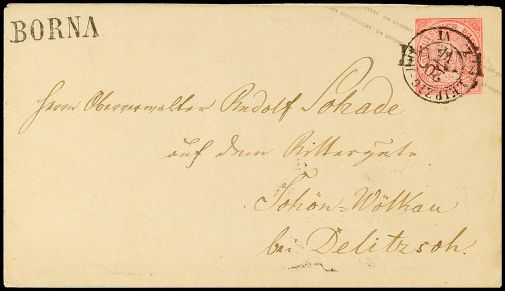 BORNA
Herrn Oberverwalter Rudolf Schade
auf dem Rittergute
Schön-Wölkau
bei Delitzsch.